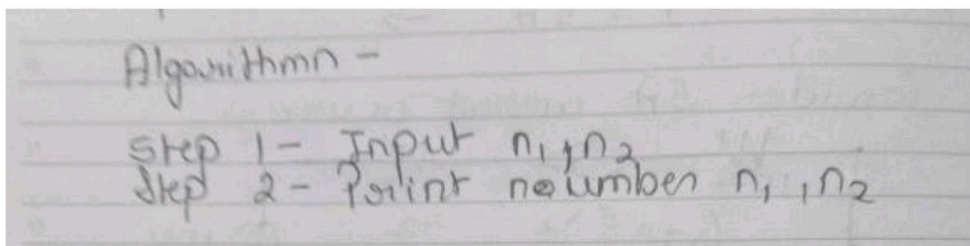 Algorithmn -
Step 1 - Input n₁, n₂
Step 2 - Print number n₁, n₂